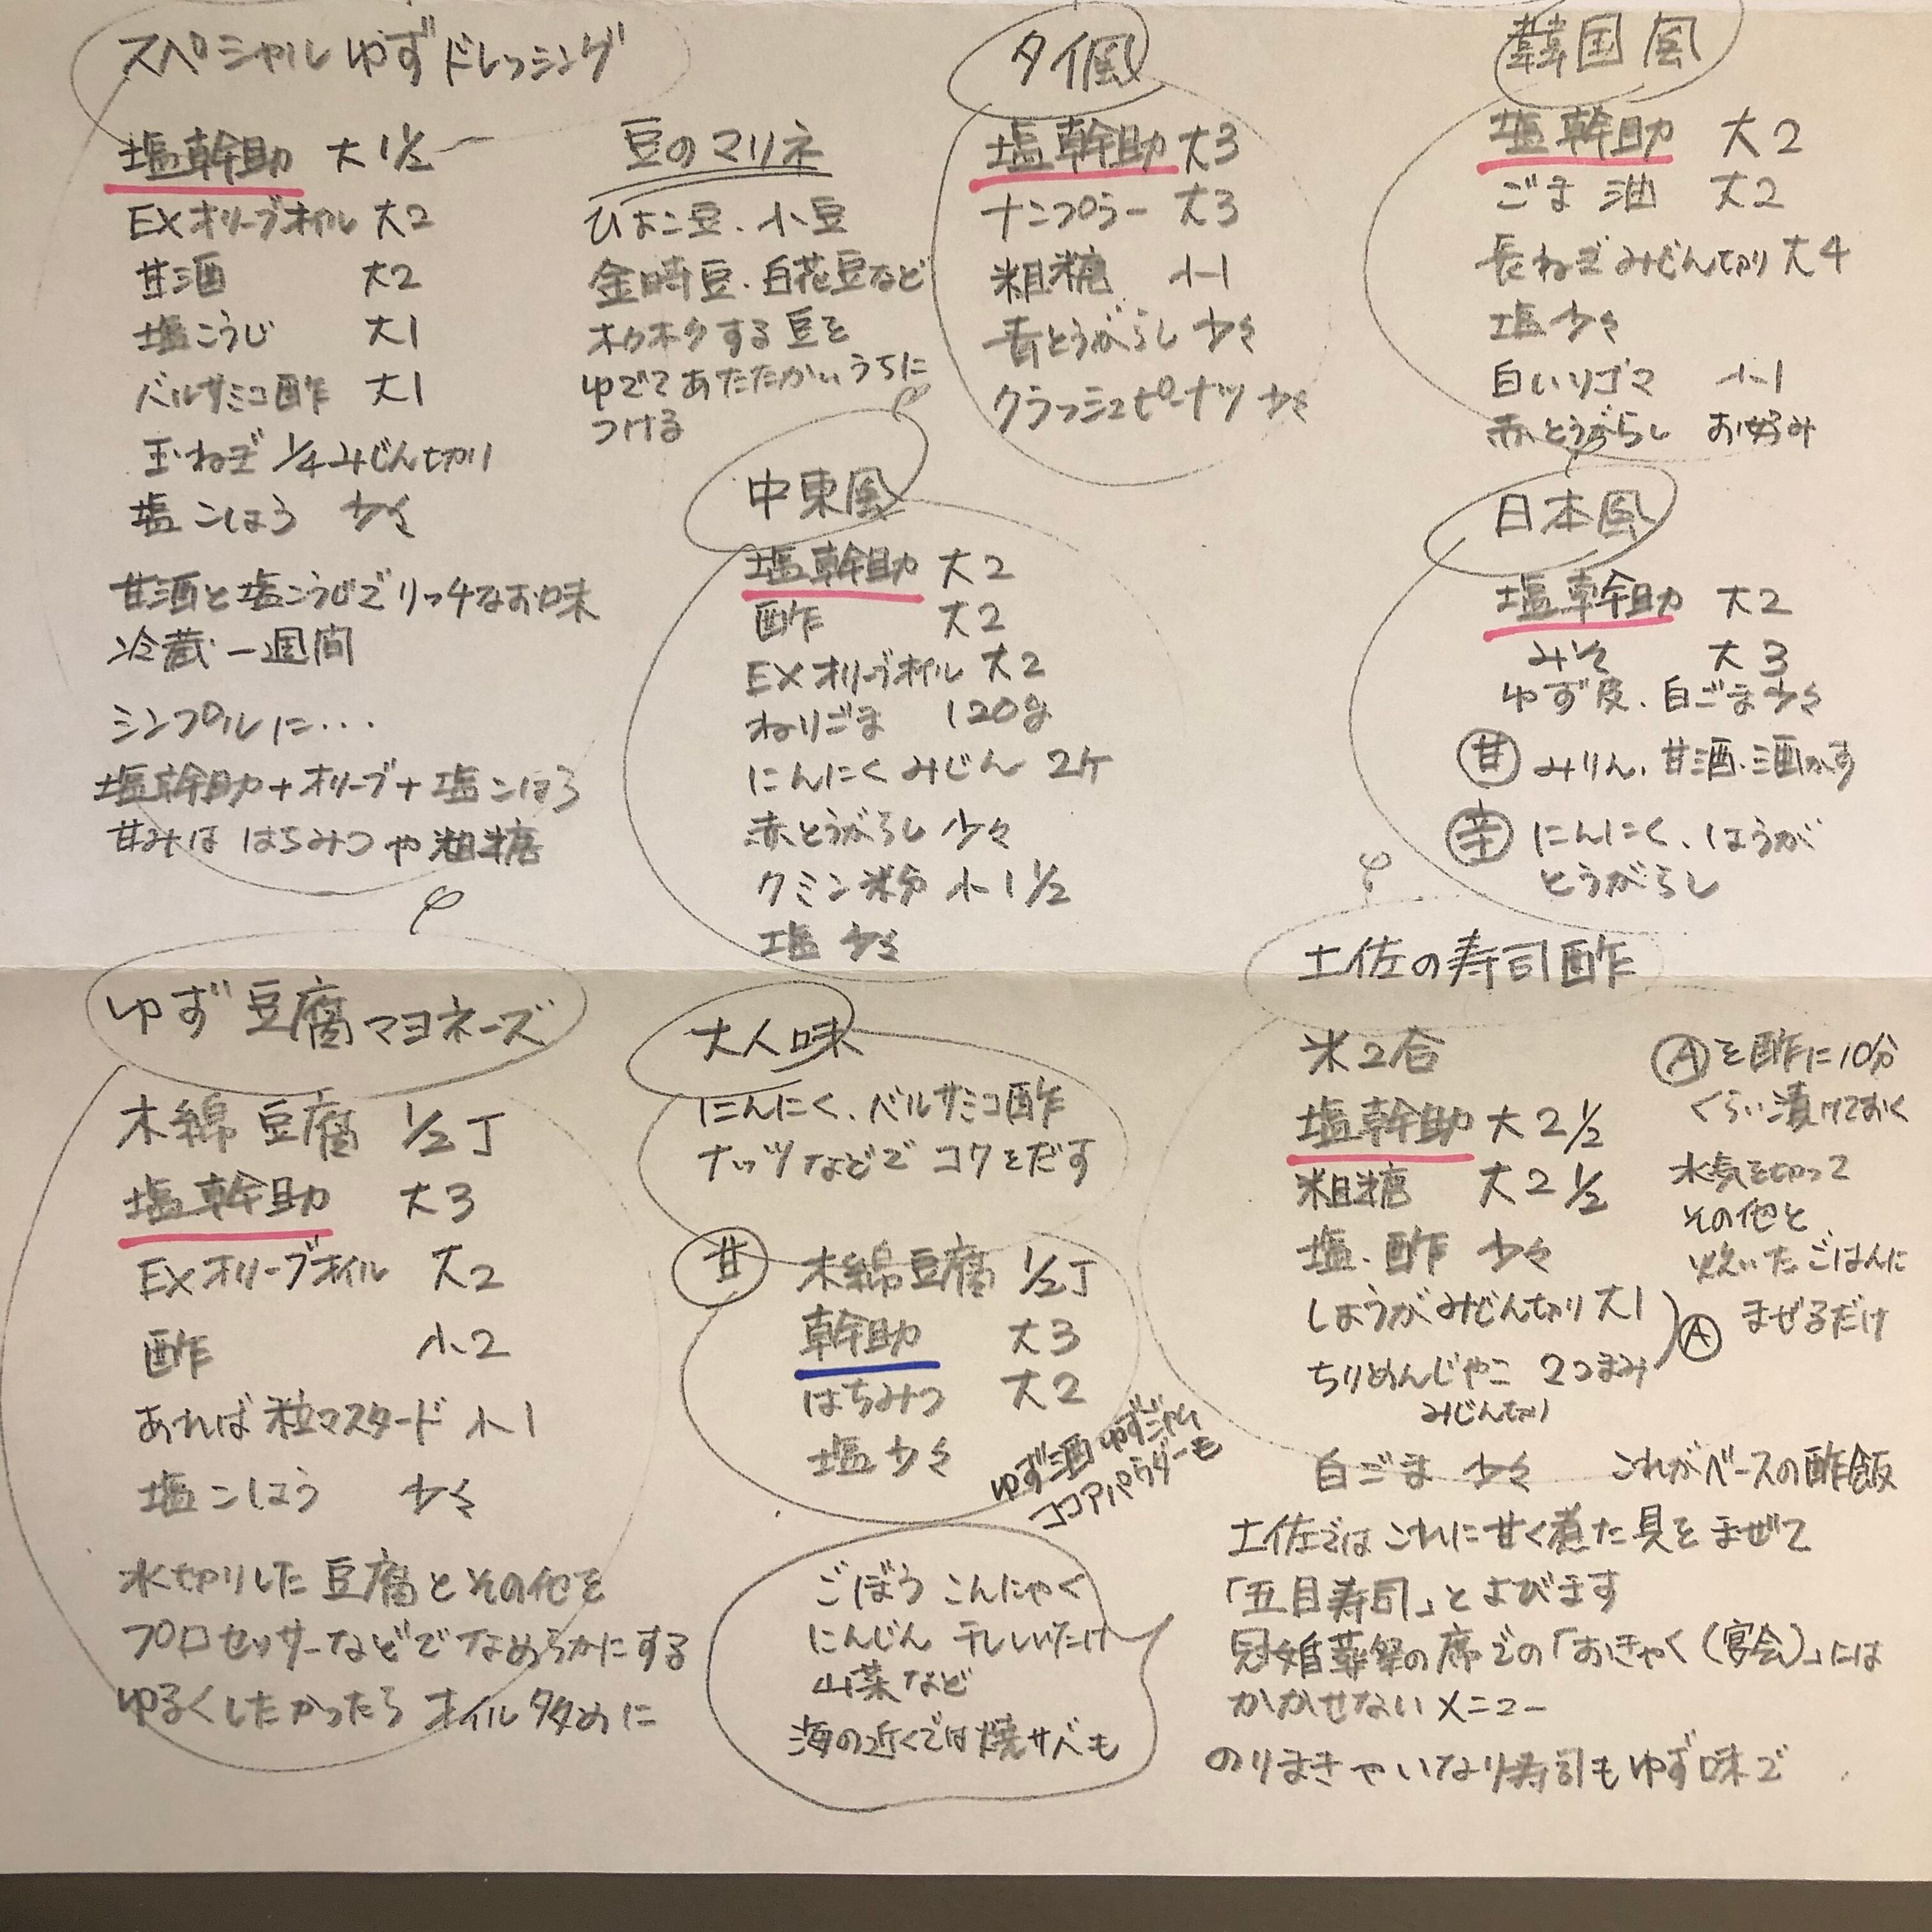 スペシャルゆずドレッシング
塩幹助 大1½
EXオリーブオイル 大2
甘酒 大2
塩こうじ 大1
バルサミコ酢 大1
玉ねぎ 1/4 みじん切り
塩こしょう 少々
甘酒と塩こうじでリッチなお味
冷蔵一週間
シンプルに・・・
塩幹助+オリーブ+塩こしょう
甘みは はちみつや粗糖
豆のマリネ
ひよこ豆、小豆
金時豆、白花豆など
ホクホクする豆を
ゆでてあたたかいうちに
つける
タイ風
塩幹助 大3
ナンプラー 大3
粗糖 小1
青とうがらし 少々
クラッシュピーナツ 少々
韓国風
塩幹助 大2
ごま油 大2
長ねぎみじん切り 大4
塩 少々
白いりゴマ 小1
赤とうがらし お好み
中東風
塩幹助 大2
酢 大2
EXオリーブオイル 大2
ねりごま 120g
にんにくみじん 2ケ
赤とうがらし 少々
クミン粉 小1½
塩 少々
日本風
塩幹助 大2
みそ 大3
ゆず皮、白ごま少々
甘 みりん、甘酒、酒かす
辛 にんにく、しょうが
とうがらし
ゆず豆腐マヨネーズ
木綿豆腐 ½丁
塩幹助 大3
EXオリーブオイル 大2
酢 小2
あれば粒マスタード 小1
塩こしょう 少々
水切りした豆腐とその他を
プロセッサーなどでなめらかにする
ゆるくしたかったらオイル多めに
大人味
にんにく、バルサミコ酢
ナッツなどでコクをだす
甘 木綿豆腐 ½丁
幹助 大3
はちみつ 大2
塩少々
ゆず酒 ゆずジャム
ココアパウダーも
土佐の寿司酢
米2合
塩幹助 大2½
粗糖 大2½
塩、酢 少々
しょうがみじん切り 大1
ちりめんじゃこ 2つまみ
みじん切り
A
白ごま 少々
Aを酢に10分
くらい漬けておく
水気を切って
その他と
炊いたごはんに
まぜるだけ
これがベースの酢飯
土佐ではこれに甘く煮た具をまぜて
「五目寿司」とよびます
冠婚葬祭の席での「おきゃく(宴会)」には
かかせないメニュー
のりまきやいなり寿司もゆず味で
ごぼう こんにゃく
にんじん 干ししいたけ
山菜など
海の近くでは焼サバも